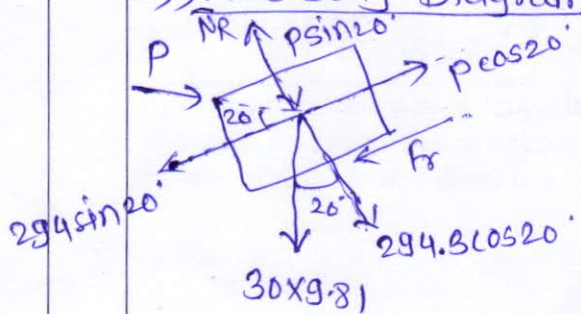 Body Diagram
NR
Psin20°
P
pcos20°
20°
Fr
294sin20°
20°
294.3cos20°
30x9.81